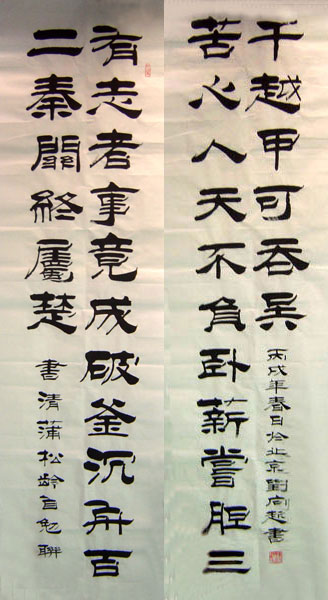 有志者事竟成破釜沉舟百
二秦關終屬楚
書清蒲松齡自勉聯
苦心人天不負卧薪嘗胆三
千越甲可吞吳
丙戌年春日於北京劉向越書